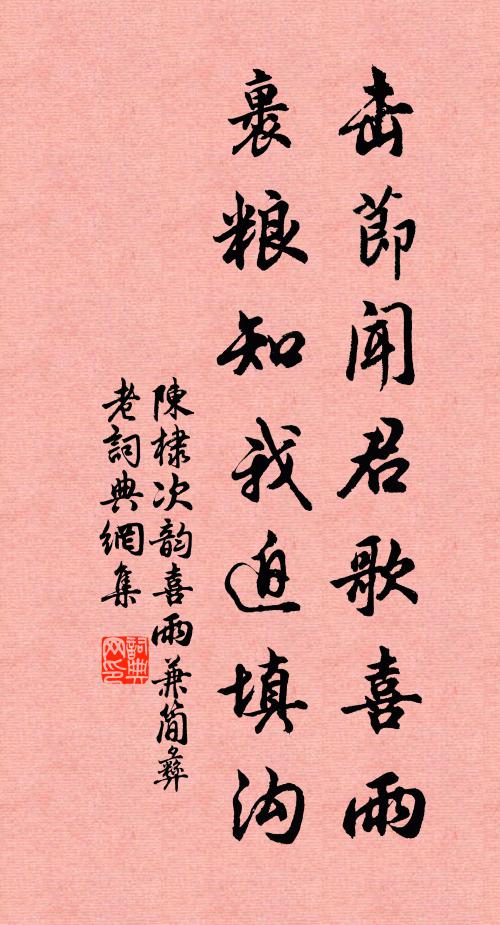 击節闻君歌喜雨
裹粮知我迫填沟
陳棣次韵喜雨兼简彝
老詞典網集
詞典网印